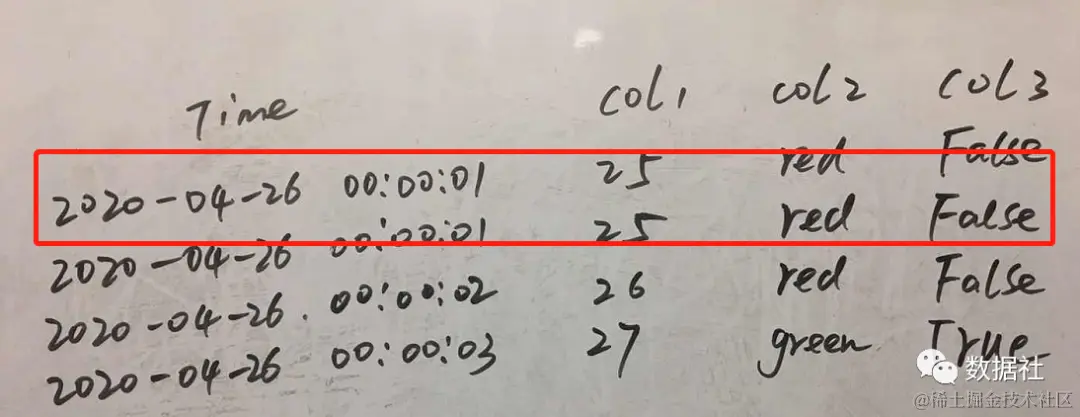 Time col1 col2 col3
2020-04-26 00:00:01 25 red False
2020-04-26 00:00:01 25 red False
2020-04-26. 00:00:02 26 red False
2020-04-26 00:00:03 27 green True
数据社
@稀土掘金技术社区